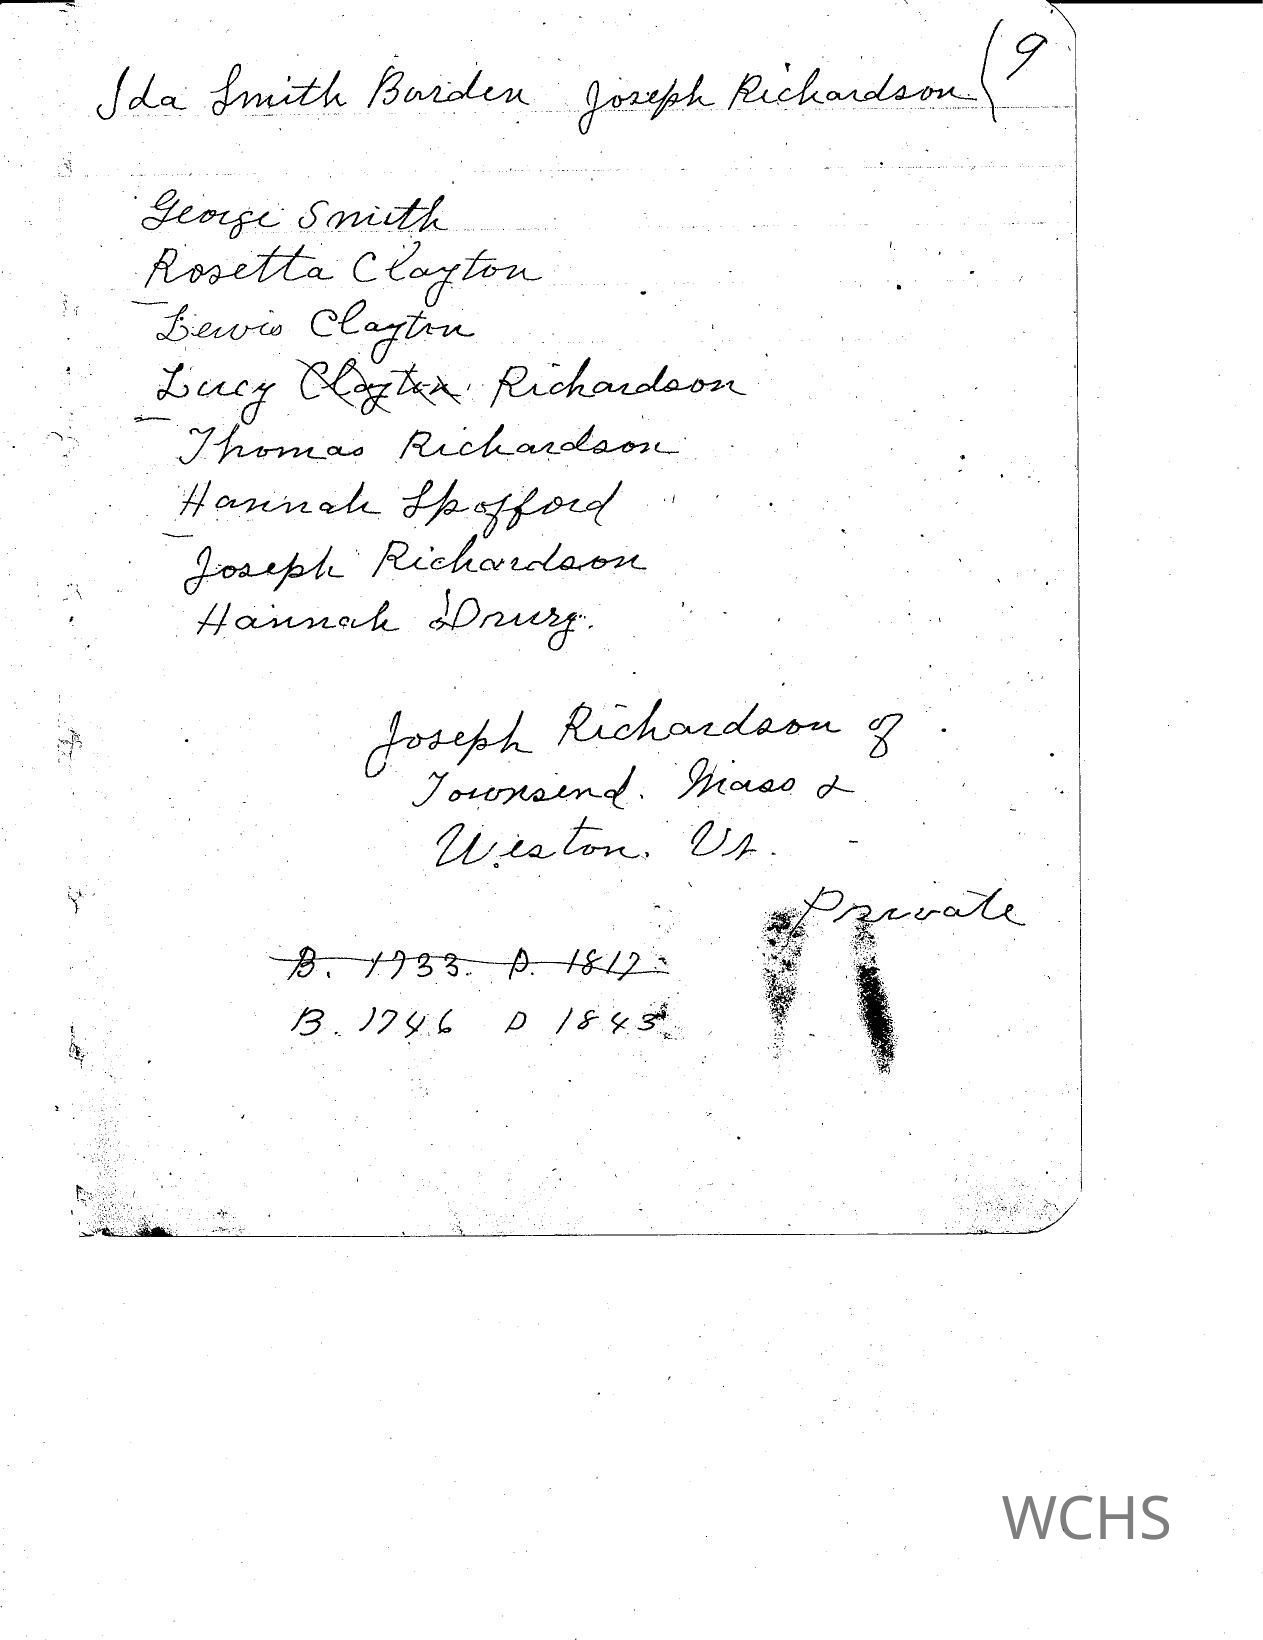 Ida Smith Burden Joseph Richardson ( 9
George Smith
Rosetta Clayton
Lewis Clayton
Lucy Clayton Richardson
Thomas Richardson
Hannah Spofford
Joseph Richardson
Hannah Drury.
Joseph Richardson of
Townsend. Mass &
Weston. Vt.
Private
B. 1733. D. 1817
B. 1746 D 1843
WCHS